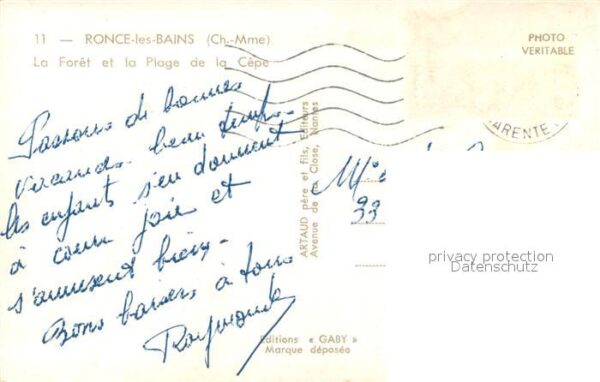 11 — RONCE-les-BAINS (Ch.-Mme)
La Forêt et la Plage de la Cèpe
PHOTO
VERITABLE
ARENTE
Passons de bonnes
vacances beau temps.
les enfants s'en donnent
à cœur joie et
s'amusent bien.
Bons baisers à tous
Raymonde
ARTAUD père et fils, Editeurs
Avenue de la Close, Nantes
33
privacy protection
Datenschutz
Editions « GABY »
Marque déposée